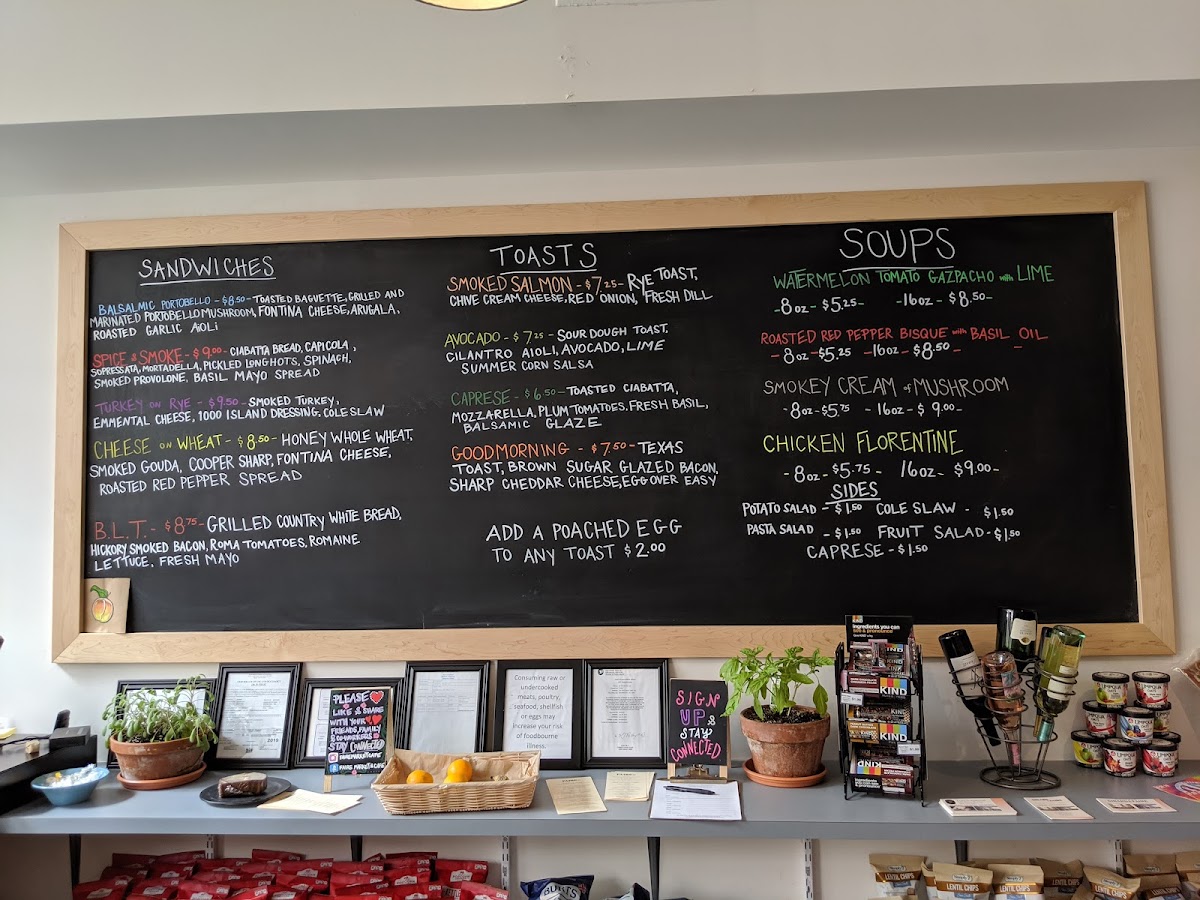 SANDWICHES
BALSALMIC PORTOBELLO - $8.50 - TOASTED BAGUETTE, GRILLED AND
MARINATED PORTOBELLO MUSHROOM, FONTINA CHEESE, ARUGALA,
ROASTED GARLIC AIOLI
SPICE & SMOKE - $9.00 - CIABATTA BREAD, CAPICOLA,
SOPRESSATA, MORTADELLA, PICKLED LONGHOTS, SPINACH,
SMOKED PROVOLONE, BASIL MAYO SPREAD
TURKEY ON RYE - $9.50 - SMOKED TURKEY,
EMMENTAL CHEESE, 1000 ISLAND DRESSING, COLE SLAW
CHEESE ON WHEAT - $8.50 - HONEY WHOLE WHEAT,
SMOKED GOUDA, COOPER SHARP, FONTINA CHEESE,
ROASTED RED PEPPER SPREAD
B.L.T. - $8.75 - GRILLED COUNTRY WHITE BREAD,
HICKORY SMOKED BACON, ROMA TOMATOES, ROMAINE
LETTUCE, FRESH MAYO
TOASTS
SMOKED SALMON - $7.25 - RYE TOAST,
CHIVE CREAM CHEESE, RED ONION, FRESH DILL
AVOCADO - $7.25 - SOURDOUGH TOAST.
CILANTRO AIOLI, AVOCADO, LIME
SUMMER CORN SALSA
CAPRESE - $6.50 - TOASTED CIABATTA,
MOZZARELLA, PLUM TOMATOES, FRESH BASIL,
BALSAMIC GLAZE
GOOD MORNING - $7.50 - TEXAS
TOAST, BROWN SUGAR GLAZED BACON,
SHARP CHEDDAR CHEESE, EGG OVER EASY
ADD A POACHED EGG
TO ANY TOAST $2.00
SOUPS
WATERMELON TOMATO GAZPACHO with LIME
- 8oz - $5.25 - - 16oz - $8.50 -
ROASTED RED PEPPER BISQUE with BASIL OIL
- 8oz - $5.25 - 16oz - $8.50 -
SMOKEY CREAM of MUSHROOM
- 8oz - $5.75 - 16oz - $9.00 -
CHICKEN FLORENTINE
- 8oz - $5.75 - 16oz - $9.00 -
SIDES
POTATO SALAD - $1.50 COLE SLAW - $1.50
PASTA SALAD - $1.50 FRUIT SALAD - $1.50
CAPRESE - $1.50
PLEASE
LIKE & SHARE
WITH YOUR
FRIENDS, FAMILY
& COWORKERS
STAY CONNECTED
Consuming raw or
undercooked
meats, poultry,
seafood, shellfish
or eggs may
increase your risk
of foodbourne
illness.
SIGN
UP &
STAY
CONNECTED
ingredients you can
see & pronounce
KIND
KIND
KIND
KIND
LENTIL CHIPS
LENTIL CHIPS
LENTIL CHIPS